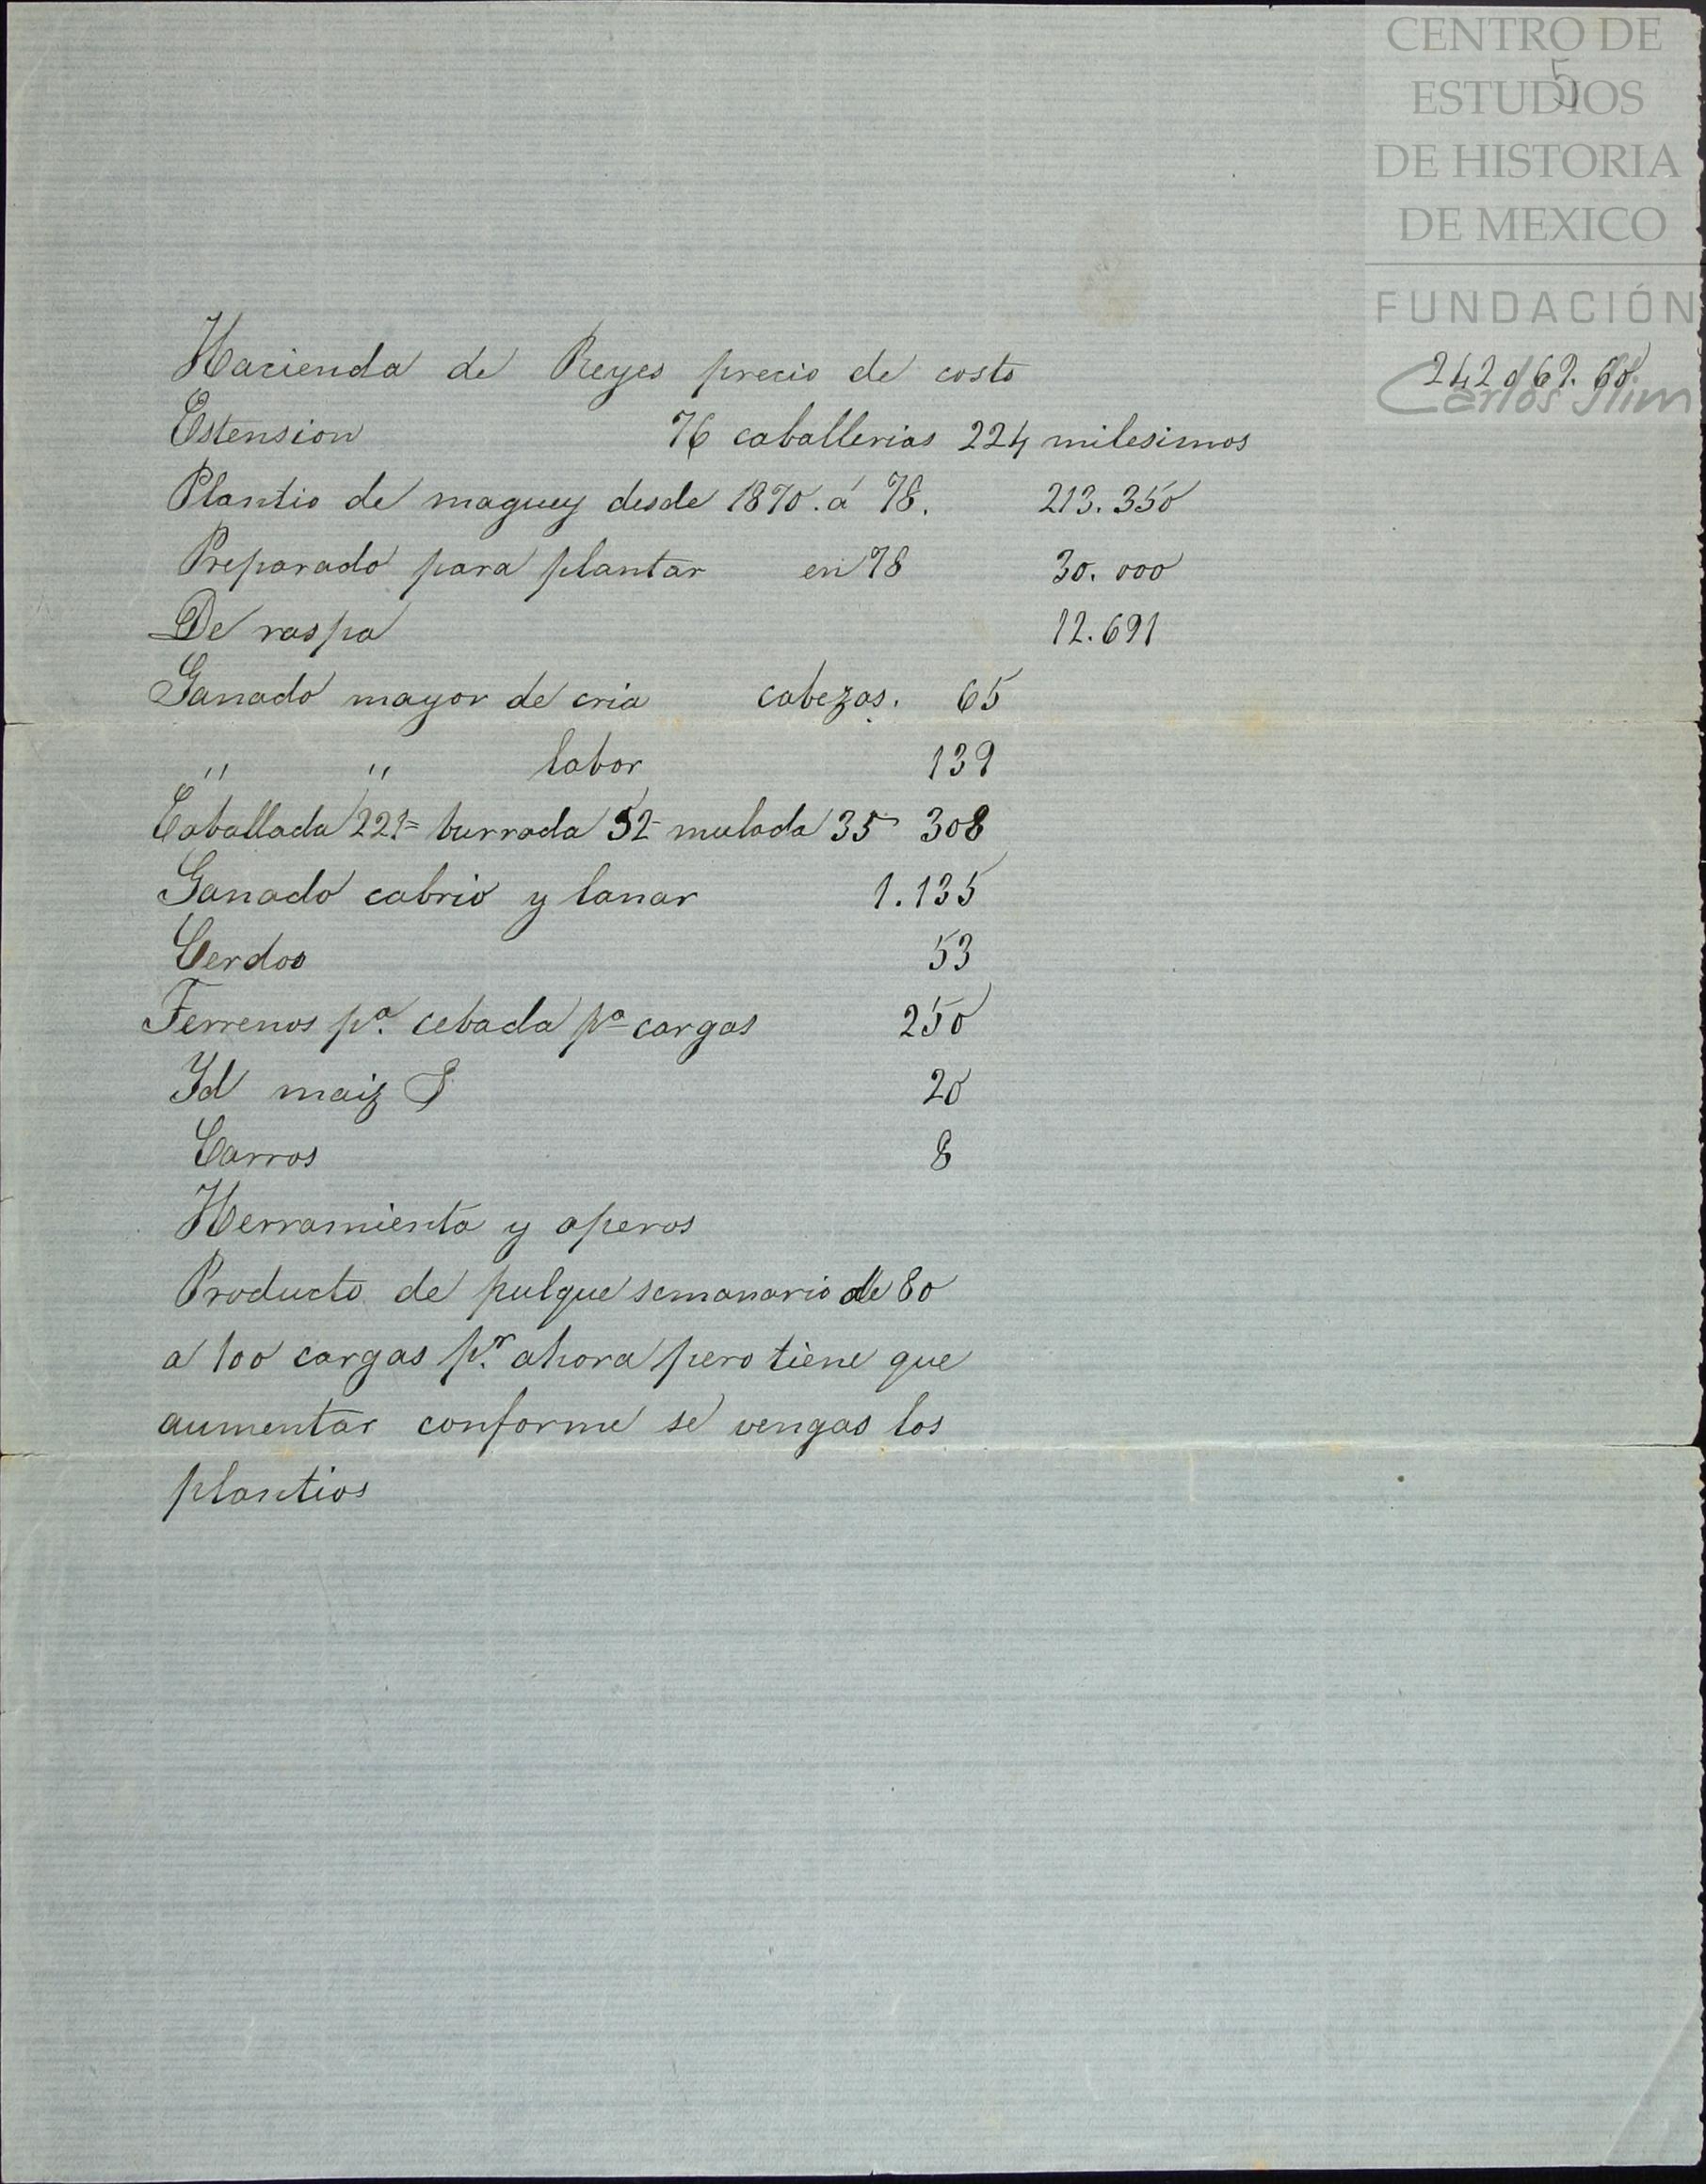 CENTRO DE
5
ESTUDIOS
DE HISTORIA
DE MEXICO
FUNDACIÓN
Carlos Slim
Hacienda de Reyes precio de costo 242 169. 60
Estension 76 caballerias 224 milesimos
Plantio de maguey desde 1870. á 78. 213.350
Preparado para plantar en 78 30.000
De raspa 12.691
Ganado mayor de cria cabezas. 65
" " labor 139
Caballada 221= burrada 52- mulada 35- 308
Ganado cabrio y lanar 1.135
Cerdos 53
Terrenos pª. cebada pª cargas 250
Id maiz 20
Carros 8
Herramienta y aperos
Producto de pulque semanario de 80
a 100 cargas pr. ahora pero tiene que
aumentar conforme se vengas los
plantios